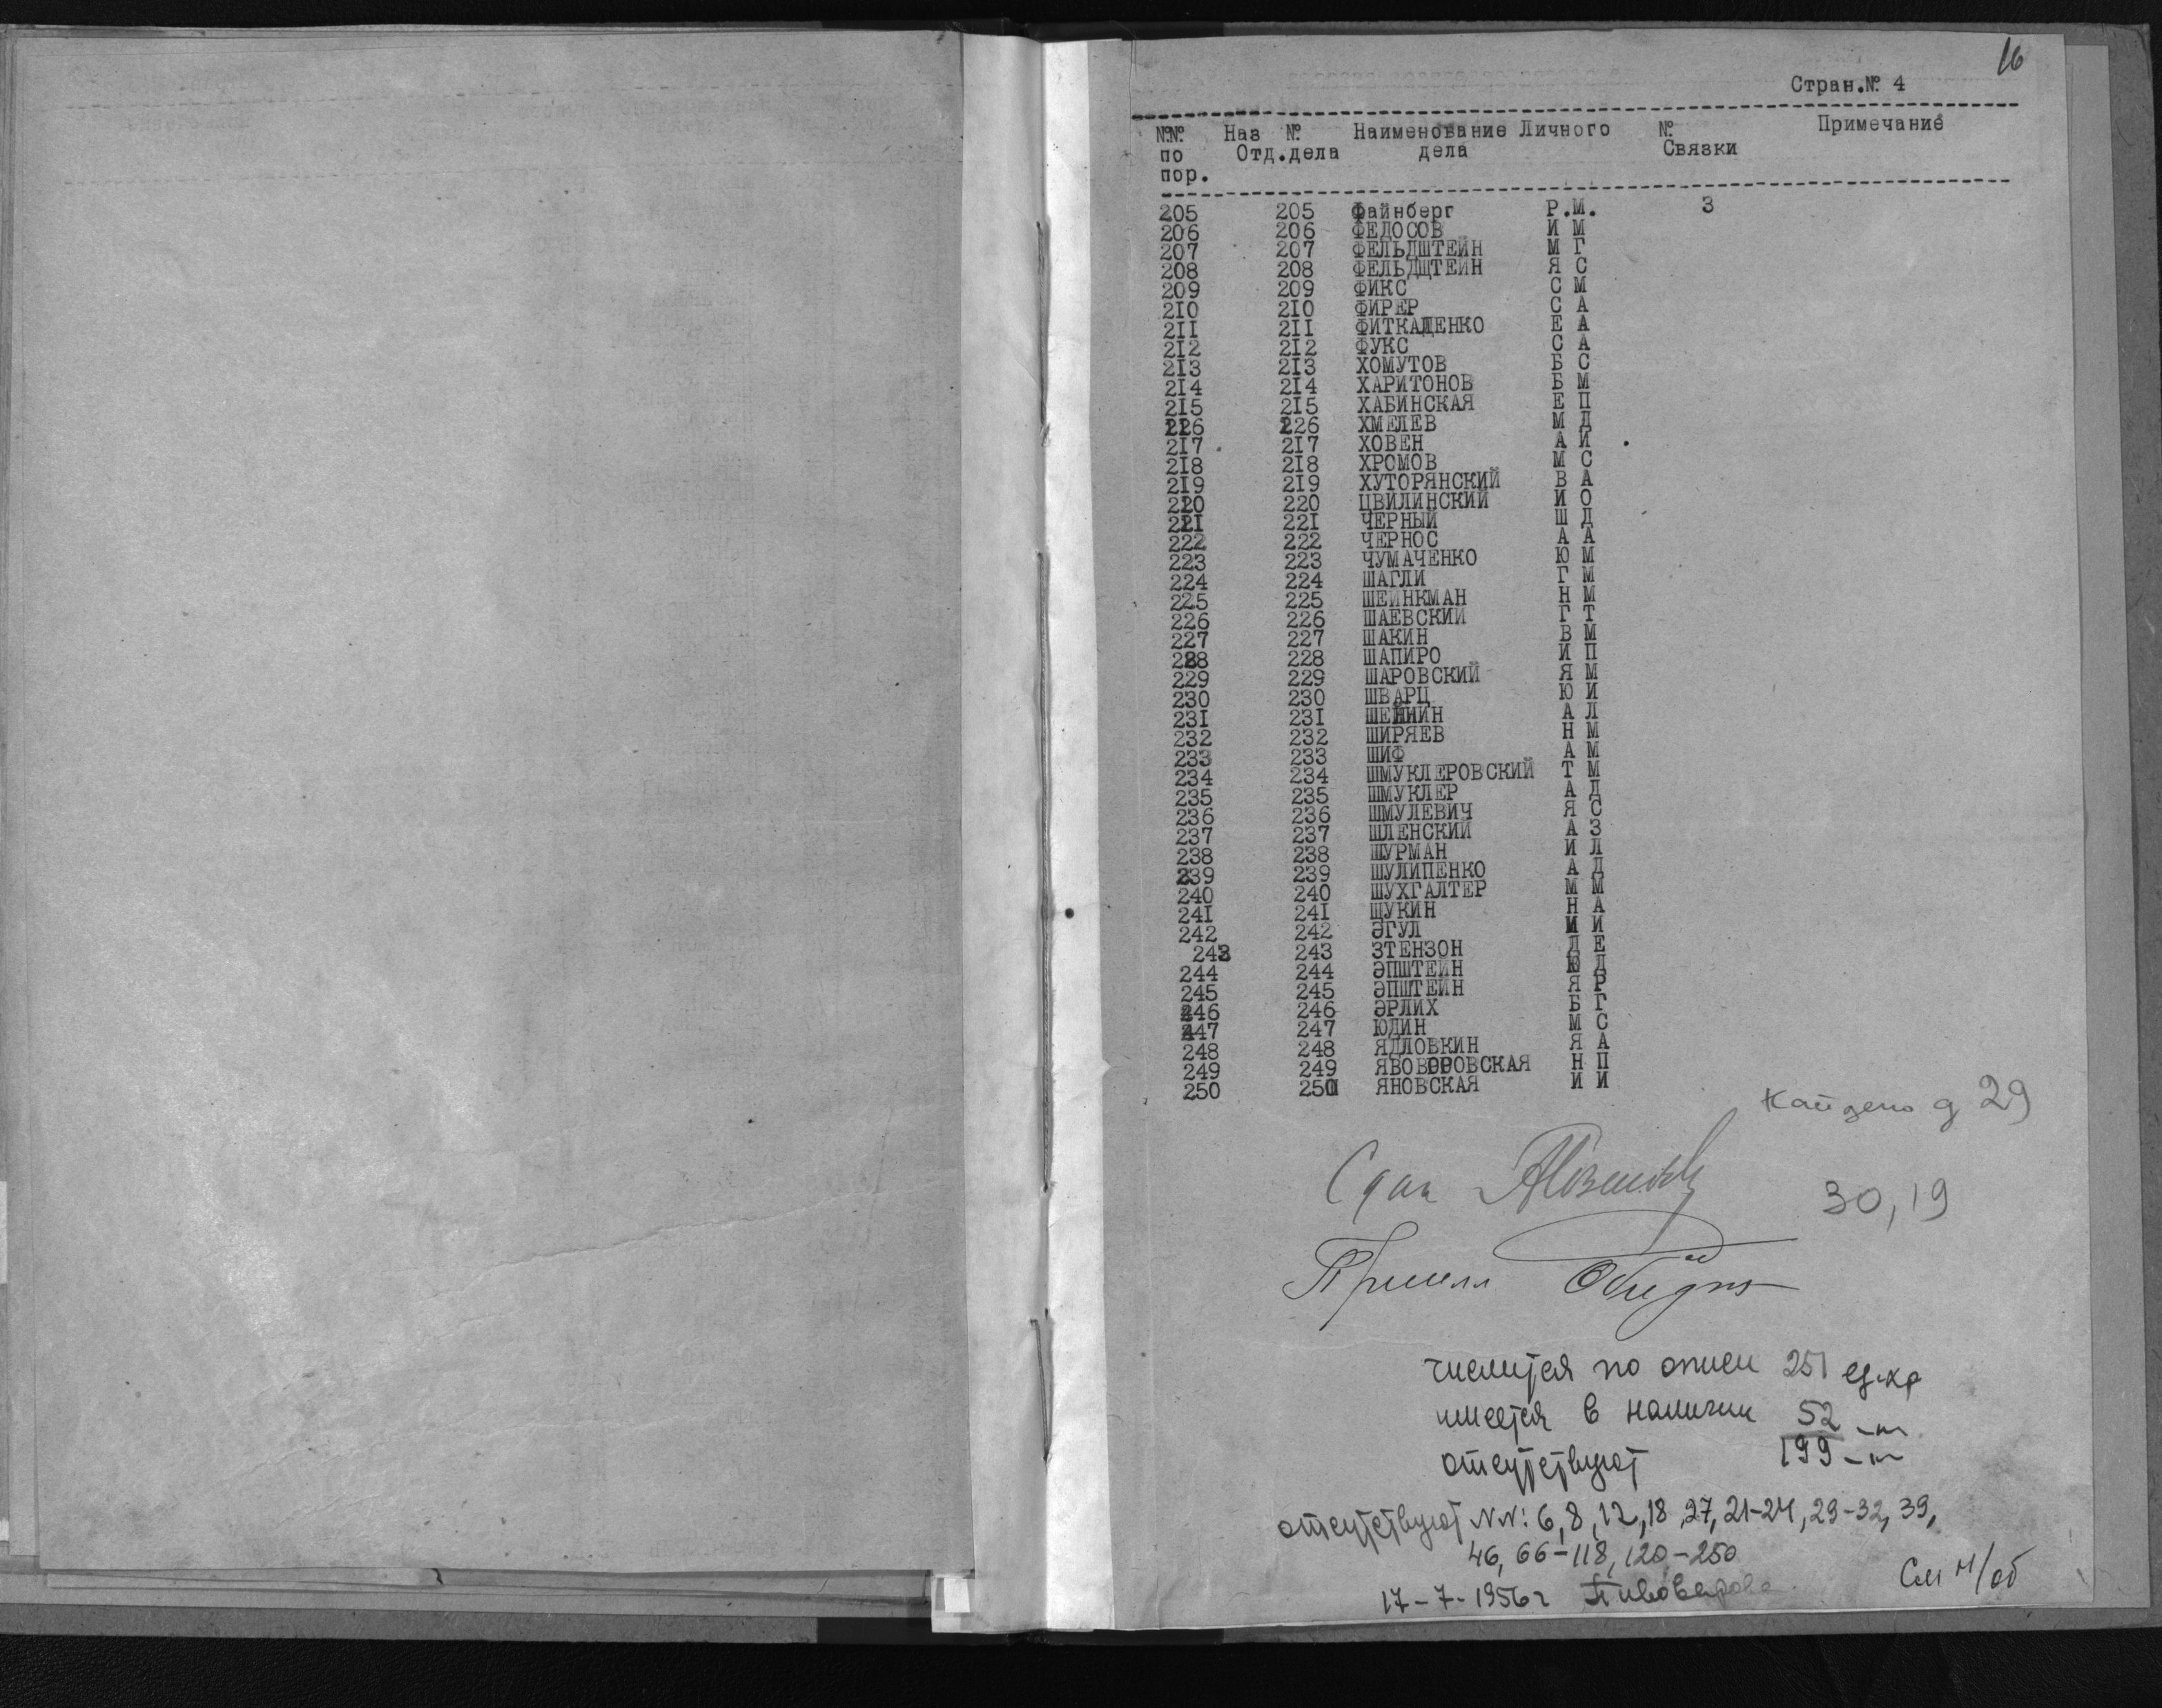 16
Стран.№ 4
№№ Наз № Наименование Личного № Примечание
по Отд.дела дела Связки
пор.
205 205 Файнберг Р.М. 3
206 206 ФЕДОСОВ И М
207 207 ФЕЛЬДШТЕЙН М Г
208 208 ФЕЛЬДЩТЕЙН Я С
209 209 ФИКС С М
2I0 2I0 ФИРЕР С А
2II 2II ФИТКАЛЕНКО Е А
2I2 2I2 ФУКС С А
2I3 2I3 ХОМУТОВ Б С
2I4 2I4 ХАРИТОНОВ Б М
2I5 2I5 ХАБИНСКАЯ Е П
226 226 ХМЕЛЕВ М Д
2I7 2I7 ХОВЕН А И
2I8 2I8 ХРОМОВ М С
2I9 2I9 ХУТОРЯНСКИЙ В А
220 220 ЦВИЛИНСКИЙ И О
22I 22I ЧЕРНЫЙ Ш Д
222 222 ЧЕРНОС А А
223 223 ЧУМАЧЕНКО Ю М
224 224 ШАГЛИ Г М
225 225 ШЕЙНКМАН Н М
226 226 ШАЕВСКИЙ Г Т
227 227 ШАКИН В М
228 228 ШАПИРО И П
229 229 ШАРОВСКИЙ Я М
230 230 ШВАРЦ Ю И
23I 23I ШЕЙНИН А Л
232 232 ШИРЯЕВ Н М
233 233 ШИФ А М
234 234 ШМУКЛЕРОВСКИЙ Т М
235 235 ШМУКЛЕР А Д
236 236 ШМУЛЕВИЧ Я С
237 237 ШЛЕНСКИЙ А З
238 238 ШУРМАН И Л
239 239 ШУЛИПЕНКО А Д
240 240 ШУХГАЛТЕР М М
24I 24I ЩУКИН Н А
242 242 ЭГУЛ М И
243 243 ЗТЕНЗОН Д Е
244 244 ЭПШТЕЙН Ю Д
245 245 ЭПШТЕЙН Я Р
246 246 ЭРЛИХ Б Г
247 247 ЮДИН М С
248 248 ЯДЛОВКИН Я А
249 249 Н П
250 250 ЯНОВСКАЯ И И
Найдено д 29
Сдал
30,19
Принял
числится по описи 251 ед.хр
имеется в наличии 52 -"-
отсутствуют 199 -"-
отсутствуют NN: 6, 8, 12, 18, 27, 21-24, 29-32, 39,
46, 66-118, 120-250
17-7-1956г Пивоварова
См н/об